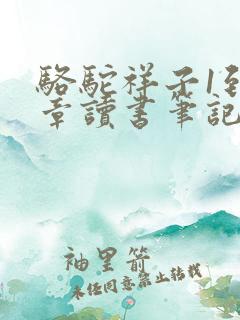 駱駝祥子1到
章讀書筆記
袖里箭
未任同意禁止转载